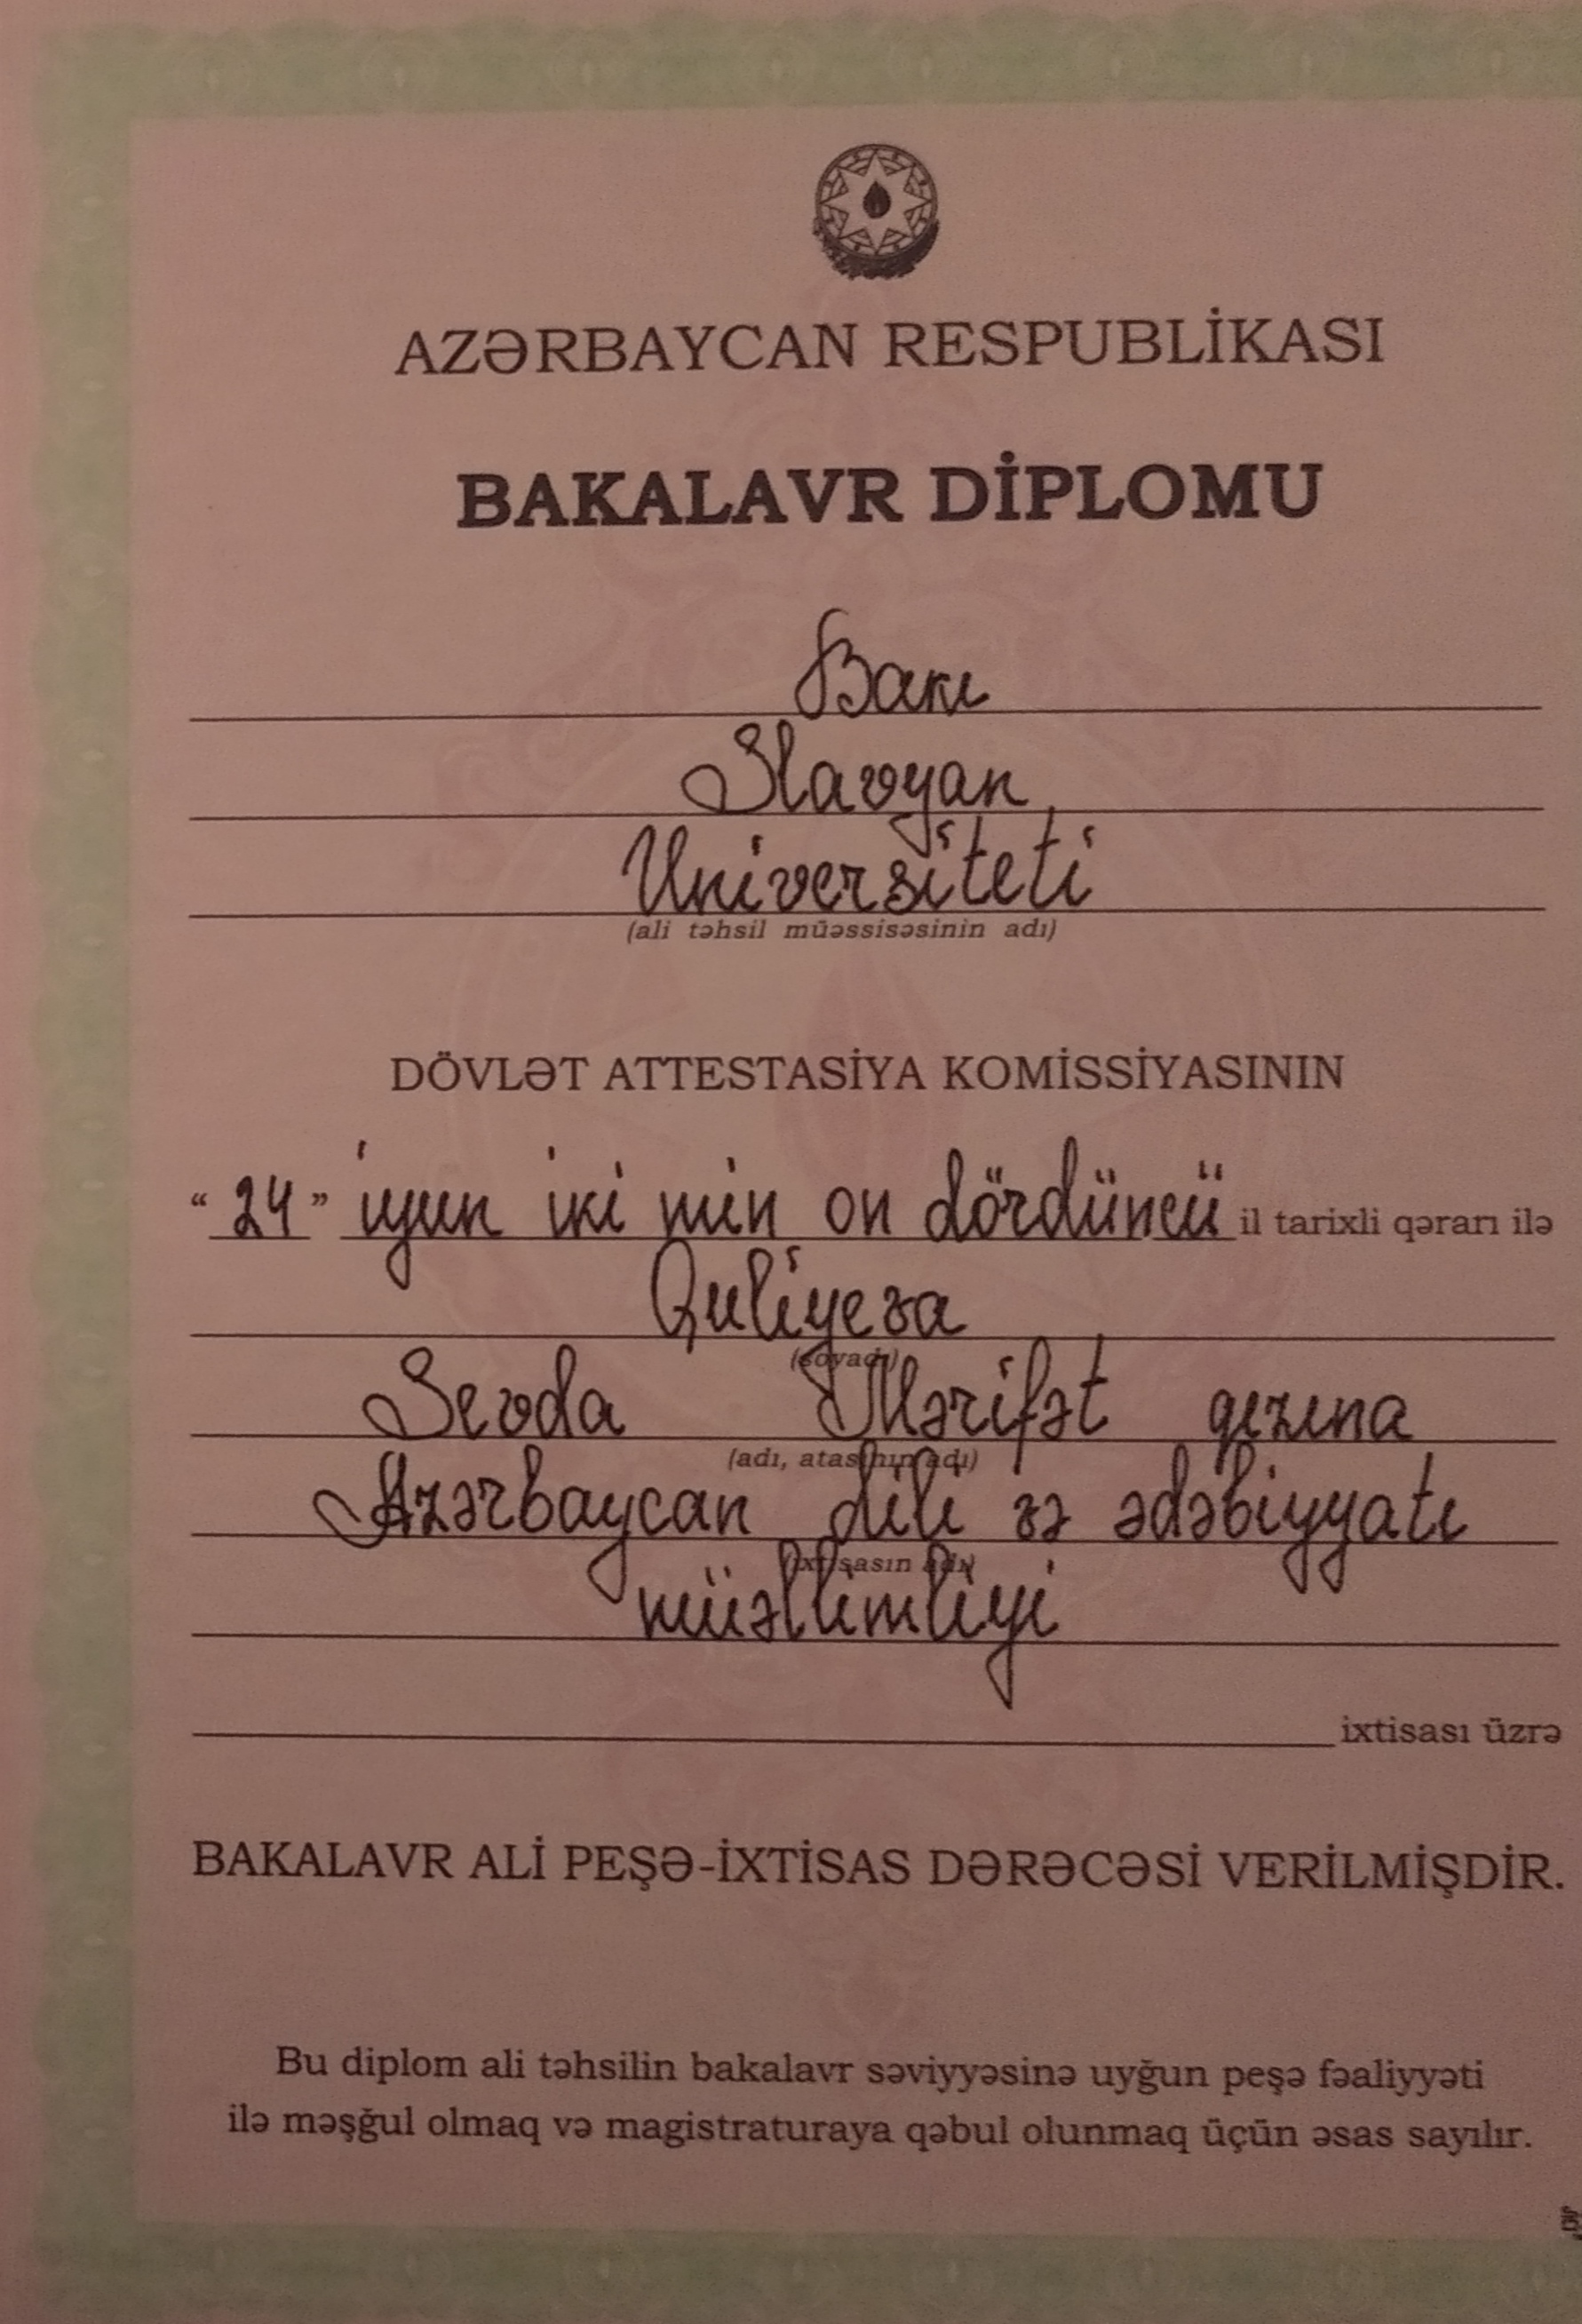 AZƏRBAYCAN RESPUBLİKASI
BAKALAVR DİPLOMU
Bakı
Slavyan
Universiteti
(ali təhsil müəssisəsinin adı)
DÖVLƏT ATTESTASİYA KOMİSSİYASININ
“ 24 ” iyun iki min on dördüncü il tarixli qərarı ilə
Quliyeva
(soyadı)
Sevda Mərifət qızına
(adı, atasının adı)
Azərbaycan dili və ədəbiyyatı
(ixtisasın adı)
müəllimliyi
ixtisası üzrə
BAKALAVR ALİ PEŞƏ-İXTİSAS DƏRƏCƏSİ VERİLMİŞDİR.
Bu diplom ali təhsilin bakalavr səviyyəsinə uyğun peşə fəaliyyəti
ilə məşğul olmaq və magistraturaya qəbul olunmaq üçün əsas sayılır.